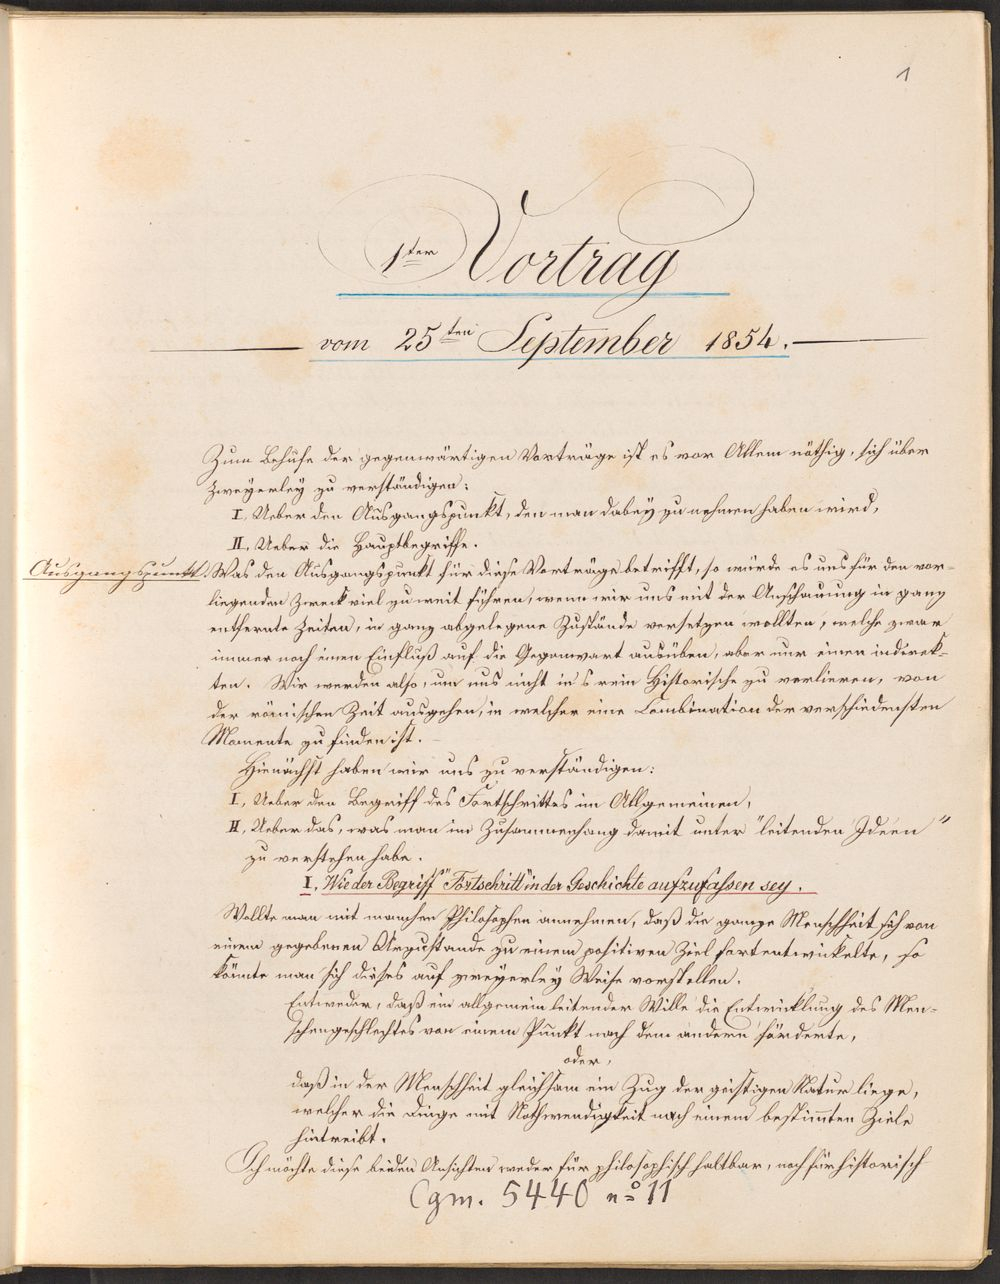 1
1ter Vortrag
vom 25ten September 1854.
Zum Behufe der gegenwärtigen Vorträge ist es vor Allem nöthig, sich über
Zweyerley zu verständigen:
I, Ueber den Ausgangspunkt, den man dabey zu nehmen haben wird,
II, Ueber die Hauptbegriffe.
Ausgangspunkt.
Was den Ausgangspunkt für diese Vorträge betrifft, so würde es uns für den vor-
liegenden Zweck viel zu weit führen, wenn wir uns mit der Anschauung in ganz
entfernte Zeiten, in ganz abgelegene Zustände versetzen wollten, welche zwar
immer noch einen Einfluß auf die Gegenwart ausüben, aber nur einen indirek-
ten. Wir werden also, um uns nicht in's rein Historische zu verlieren, von
der römischen Zeit ausgehen, in welcher eine Combination der verschiedensten
Momente zu finden ist.
Hienächst haben wir uns zu verständigen:
I, Ueber den Begriff des Fortschrittes im Allgemeinen,
II, Ueber das, was man im Zusammenhang damit unter "leitenden Ideen"
zu verstehen habe.
I, Wie der Begriff "Fortschritt" in der Geschichte aufzufassen sey.
Wollte man mit manchen Philosophen annehmen, daß die ganze Menschheit sich von
einem gegebenen Urzustande zu einem positiven Ziel fortentwickelte, so
könnte man sich dieses auf zweyerley Weise vorstellen.
Entweder, daß ein allgemein leitender Wille die Entwicklung des Men-
schengeschlechtes von einem Punkt nach dem andern förderte,
oder,
daß in der Menschheit gleichsam ein Zug der geistigen Natur liege,
welcher die Dinge mit Nothwendigkeit nach einem bestim̅ten Ziele
hintreibt.
Ich möchte diese beiden Ansichten weder für philosophisch haltbar, noch für historisch
Cgm. 5440 no 11